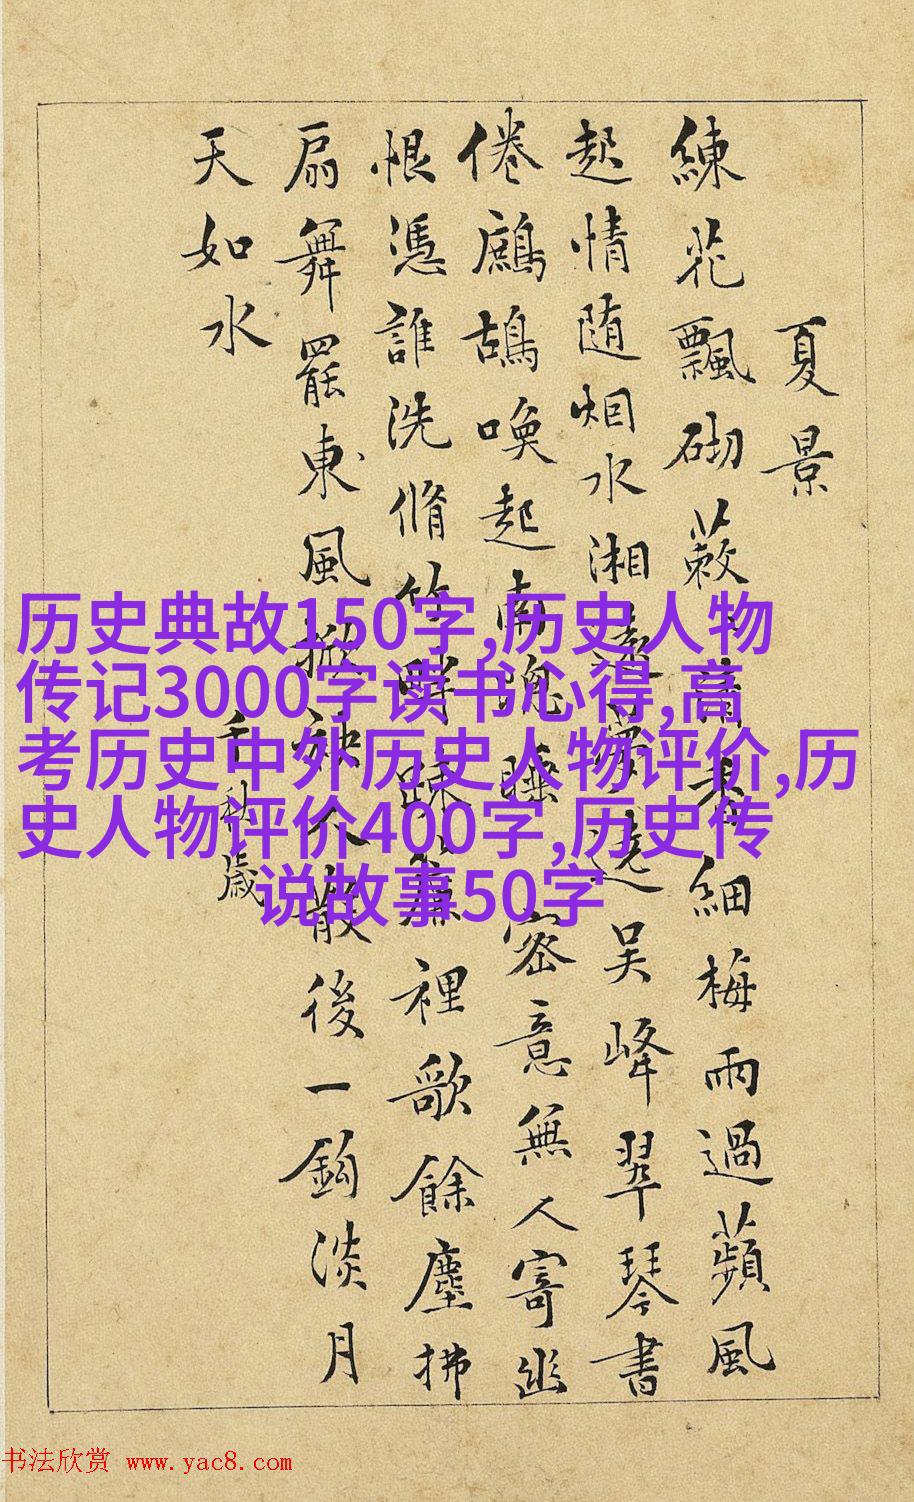 夏景
練花飄砌蔌〻清香細梅雨過蘋風
起情随烟水湘遠夢遶吳峰翠琴書
倦鷓鴣喚起南窓睡密意無人寄幽
恨憑誰洗脩竹畔疎簾裡歌餘塵拂
扇舞罷東風掀袂人散後一鈎淡月
天如水
千秋歲
历史典故150字,历史人物
传记3000字读书心得,高
考历史中外历史人物评价,历
史人物评价400字,历史传
说故事50字
书法欣赏 www.yac8.com